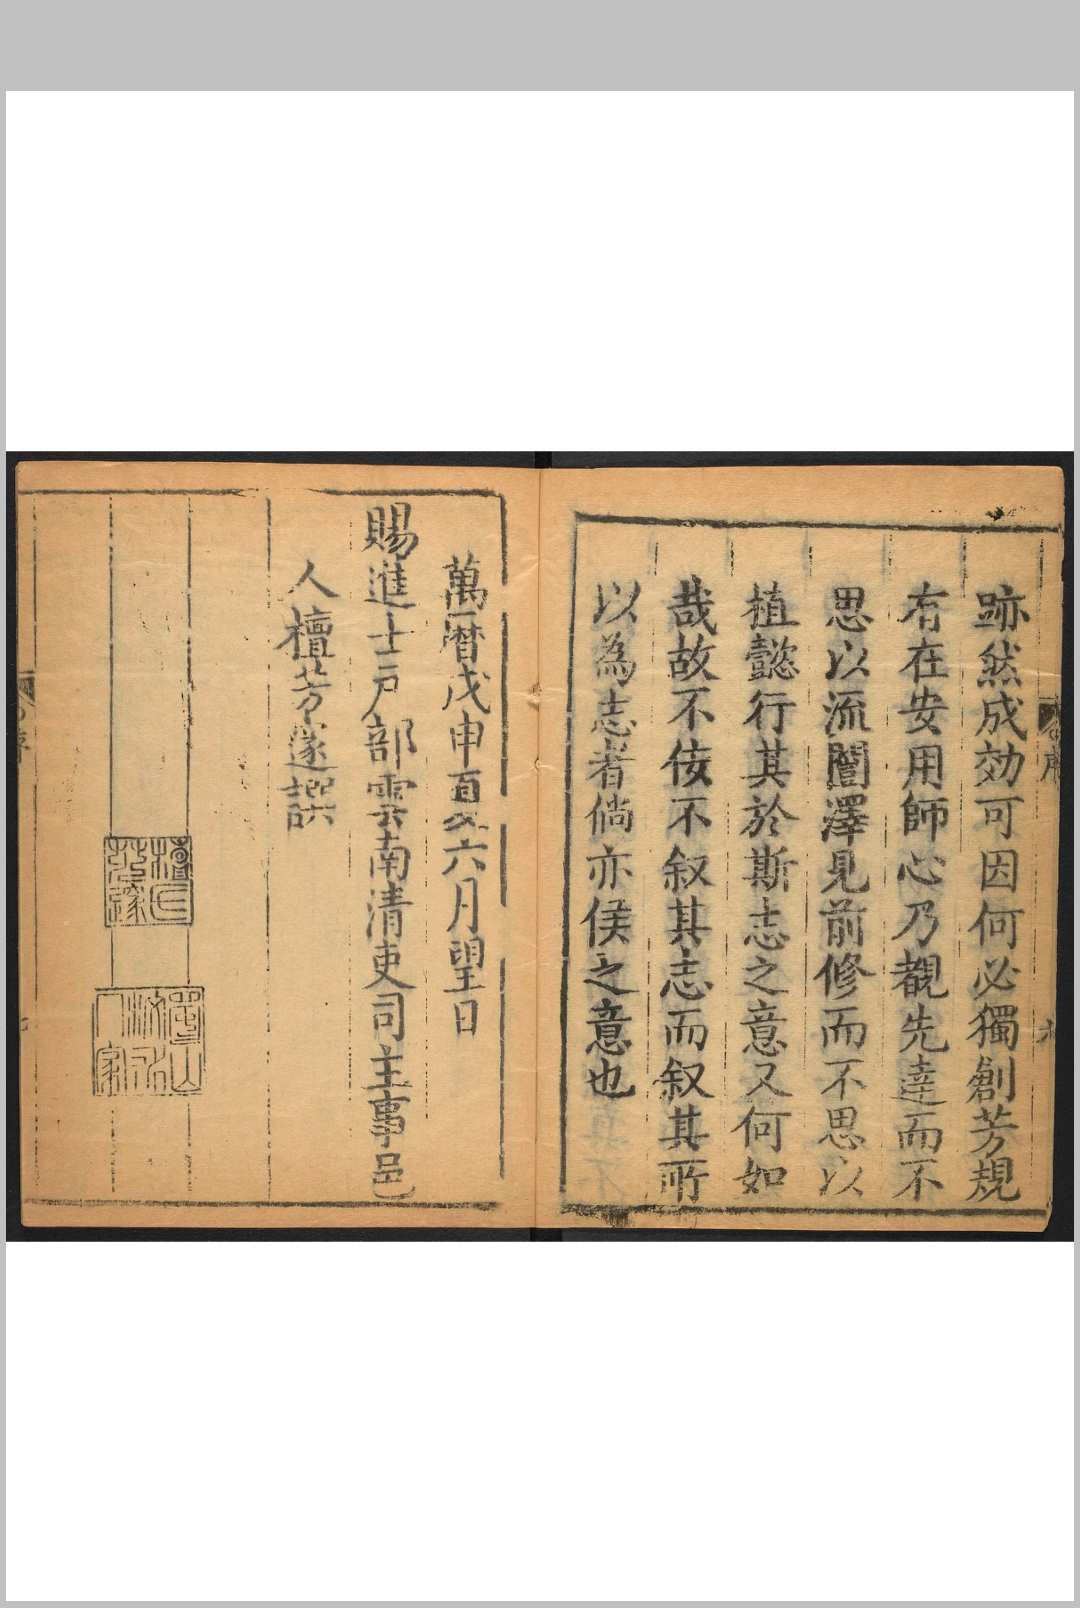 跡然成効可因何必獨創芳規
有在安用師心乃覩先達而不
思以流闓澤見前修而不思以
植懿行其於斯志之意又何如
哉故不佞不叙其志而叙其所
以為志者倘亦侯之意也
萬曆戊申夏六月望日
賜進士戶部雲南清吏司主事邑
人檀芳邃撰
檀氏芳邃